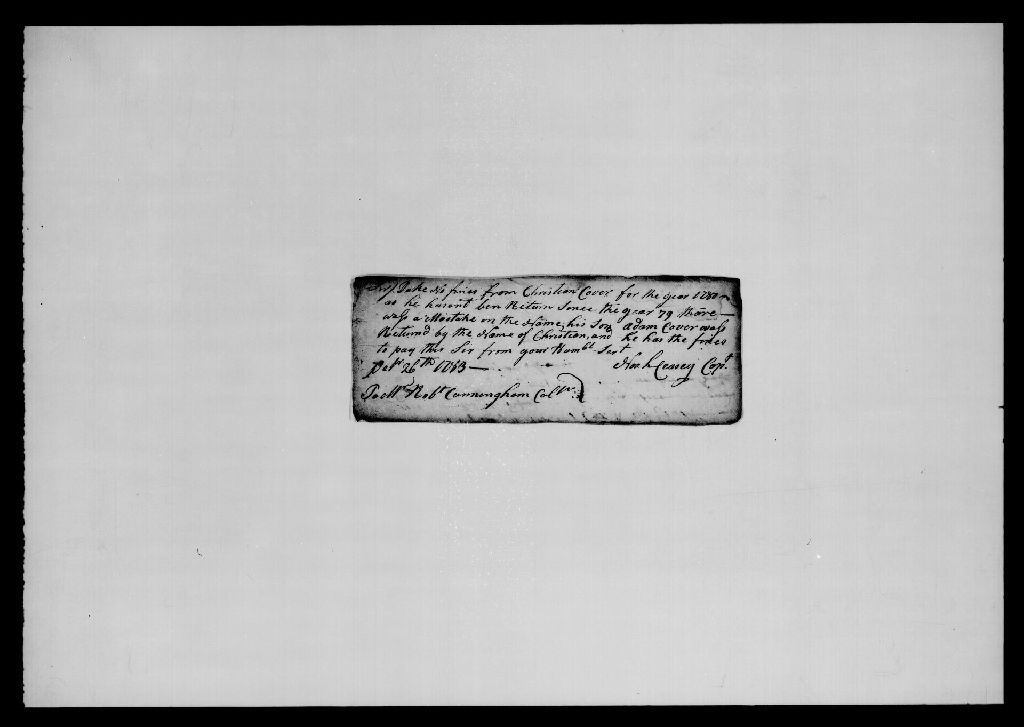 Sir Take No fines from Christian Cover for the year 1780
as he hasent ben Return Sence the year 79 thare —
wass a Mostake in the Name, his Son adam Cover wass
Returnd by the Name of Christian, and he has the fines
to pay this Sir from your Humbl Sert
26th 1783 — Noah Ceasey Capt
To Mr Robt Cunningham Coltr